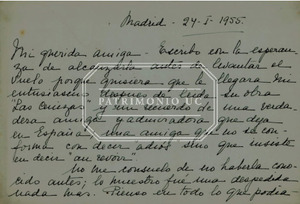 Madrid - 24-I-1955.
Mi querida amiga - Escribo con la esperan-
za de alcanzarla antes de levantar el
vuelo porque quisiera que le llegara mi
entusiasmo después de leída su obra
"Las cenizas y mi recuerdo de una verda-
dera amiga y admiradora que deja
en España una amiga que no se con-
forma con decir adios sino que insiste
en decir au revoir".
no me consuelo de no haberla cono-
cido antes; lo nuestro fue una despedida
nada mas. Pienso en todo lo que podía
PATRIMONIO UC